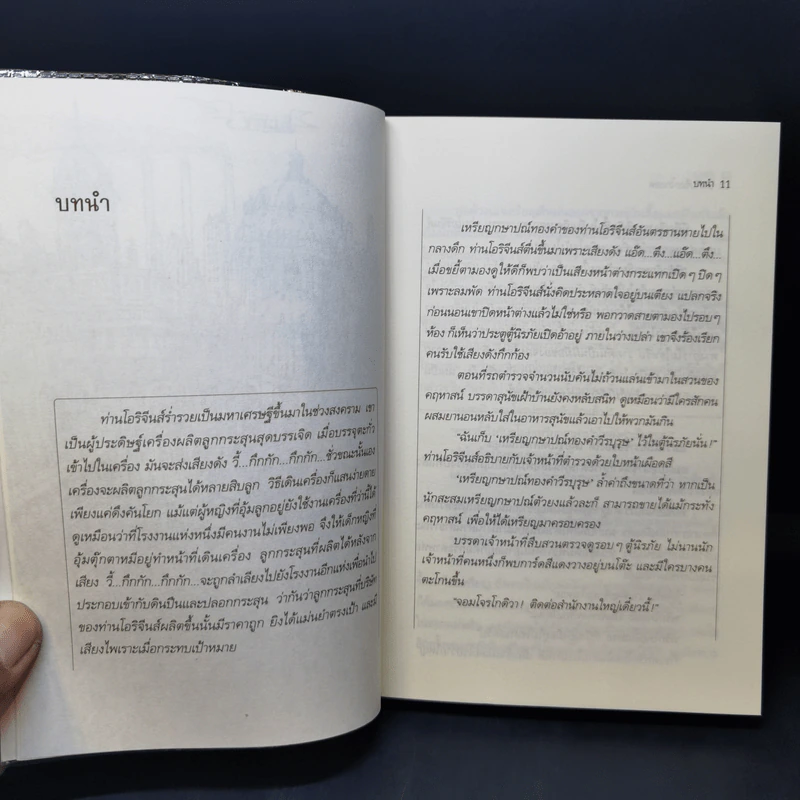 บทนำ
ท่านโอริจีนส์ร่ำรวยเป็นมหาเศรษฐีขึ้นมาในช่วงสงคราม เขา
เป็นผู้ประดิษฐ์เครื่องผลิตลูกกระสุนสุดบรรเจิด เมื่อบรรจุตะกั่ว
เข้าไปในเครื่อง มันจะส่งเสียงดัง วี้...กึกกัก...กึกกัก... ชั่วขณะนั้นเอง
เครื่องจะผลิตลูกกระสุนได้หลายสิบลูก วิธีเดินเครื่องก็แสนง่ายดาย
เพียงแค่ดึงคันโยก แม้แต่ผู้หญิงที่อุ้มลูกอยู่ยังใช้งานเครื่องที่ว่านี้ได้
ดูเหมือนว่าที่โรงงานแห่งหนึ่งมีคนงานไม่เพียงพอ จึงให้เด็กหญิงที่
อุ้มตุ๊กตาหมีอยู่ทำหน้าที่เดินเครื่อง ลูกกระสุนที่ผลิตได้หลังจาก
เสียง วี้...กึกกัก...กึกกัก...จะถูกลำเลียงไปยังโรงงานอีกแห่งเพื่อนำไป
ประกอบเข้ากับดินปืนและปลอกกระสุน ว่ากันว่าลูกกระสุนที่บริษัท
ของท่านโอริจีนส์ผลิตขึ้นนั้นมีราคาถูก ยิงได้แม่นยำตรงเป้า และมี
เสียงไพเราะเมื่อกระทบเป้าหมาย
บทนำ 11
เหรียญกษาปณ์ทองคำของท่านโอริจีนส์อันตรธานหายไปใน
กลางดึก ท่านโอริจีนส์ตื่นขึ้นมาเพราะเสียงดัง แอ๊ด...ตึง...แอ๊ด...ตึง...
เมื่อขยี้ตามองดูให้ดีก็พบว่าเป็นเสียงหน้าต่างกระแทกเปิดๆ ปิดๆ
เพราะลมพัด ท่านโอริจีนส์นั่งคิดประหลาดใจอยู่บนเตียง แปลกจริง
ก่อนนอนเขาปิดหน้าต่างแล้วไม่ใช่หรือ พอกวาดสายตามองไปรอบๆ
ห้อง ก็เห็นว่าประตูตู้นิรภัยเปิดอ้าอยู่ ภายในว่างเปล่า เขาจึงร้องเรียก
คนรับใช้เสียงดังกึกก้อง
ตอนที่รถตำรวจจำนวนนับคันไม่ถ้วนแล่นเข้ามาในสวนของ
คฤหาสน์ บรรดาสุนัขเฝ้าบ้านยังคงหลับสนิท ดูเหมือนว่ามีใครสักคน
ผสมยานอนหลับใส่ในอาหารสุนัขแล้วเอาไปให้พวกมันกิน
“ฉันเก็บ ‘เหรียญกษาปณ์ทองคำวีรบุรุษ’ ไว้ในตู้นิรภัยนั่น!”
ท่านโอริจีนส์อธิบายกับเจ้าหน้าที่ตำรวจด้วยใบหน้าเผือดสี
‘เหรียญกษาปณ์ทองคำวีรบุรุษ’ ล้ำค่าถึงขนาดที่ว่า หากเป็น
นักสะสมเหรียญกษาปณ์ตัวยงแล้วละก็ สามารถขายได้แม้กระทั่ง
คฤหาสน์ เพื่อให้ได้เหรียญมาครอบครอง
บรรดาเจ้าหน้าที่สืบสวนตรวจดูรอบๆ ตู้นิรภัย ไม่นานนัก
เจ้าหน้าที่คนหนึ่งก็พบการ์ดสีแดงวางอยู่บนโต๊ะ และมีใครบางคน
ตะโกนขึ้น
“จอมโจรโกดิวา! ติดต่อสำนักงานใหญ่เดี๋ยวนี้!”